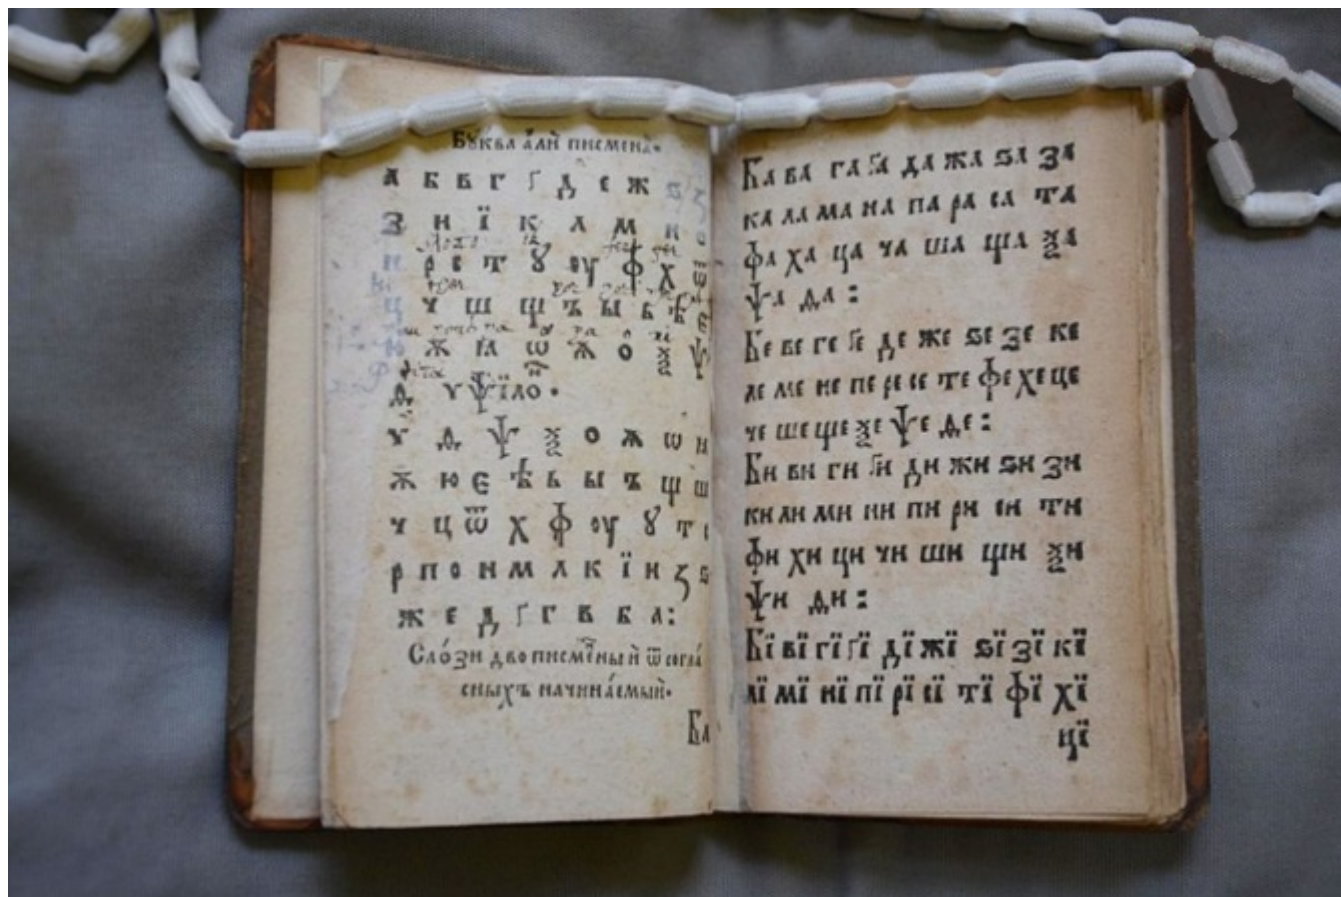 Бꙋква а҆лѝ писмена̀.
а б в г ґ д е ж ѕ ꙁ
З н ї к л м н о
п р с т ꙋ оу ф х ѿ
ц ч ш щ ъ ы ь ѣ є
ю ѫ ꙗ ѡ ѧ о ѯ ѱ
ѳ ѵ
ѵ ѳ ѱ ѯ о ѧ ѡ ꙗ
ѫ ю є ѣ ь ы ъ щ ш
ч ц ѿ х ф оу ꙋ т с
р п о н м л к ї и ꙁ ѕ
ж е д ґ г в б а:
Сло́зи двописме́ныѝ ѿ согла́
сныхъ начина́емыѝ.
Ба
Ба ва га ґа да жа ѕа за
ка ла ма на па ра са та
фа ха ца ча ша ща ѯа
ѱа ѳа :
Бе ве ге ґе де же ѕе зе ке
ле ме не пе ре се те фе хе це
че ше ще ѯе ѱе ѳе :
Би ви ги ґи ди жи ѕи зи
ки ли ми ни пи ри си ти
фи хи ци чи ши щи ѯи
ѱи ѳи :
Бї вї гї ґї дї жї ѕї зї кї
лї мї нї пї рї сї тї фї хї
цї